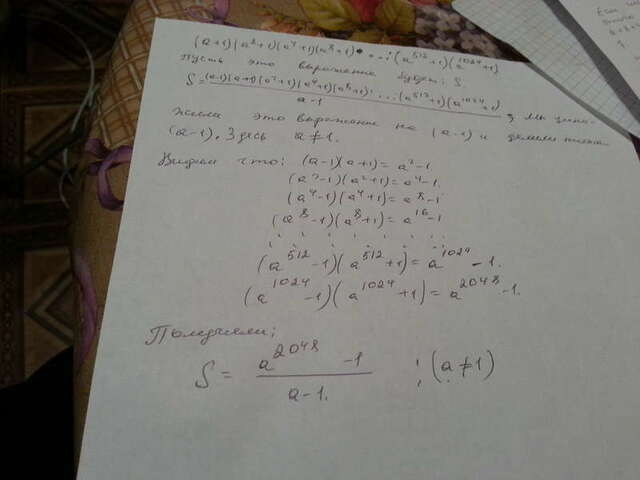 (a+1)(a²+1)(a⁴+1)(a⁸+1)• ...; (a⁵¹²+1)(a¹⁰²⁴+1)
Пусть это выражение будет: S.
S = (a-1)(a+1)(a²+1)(a⁴+1)(a⁸+1)· ...; (a⁵¹²+1)(a¹⁰²⁴+1) / a-1 мы умно-
жили это выражение на (a-1) и делили
(a-1). Здесь a≠1.
Видим что: (a-1)(a+1) = a²-1
(a²-1)(a²+1) = a⁴-1.
(a⁴-1)(a⁴+1) = a⁸-1
(a⁸-1)(a⁸+1) = a¹⁶-1
(a⁵¹²-1)(a⁵¹²+1) = a¹⁰²⁴-1.
(a¹⁰²⁴-1)(a¹⁰²⁴+1) = a²⁰⁴⁸-1.
Получили;
S = a²⁰⁴⁸-1 / a-1. ; (a≠1)